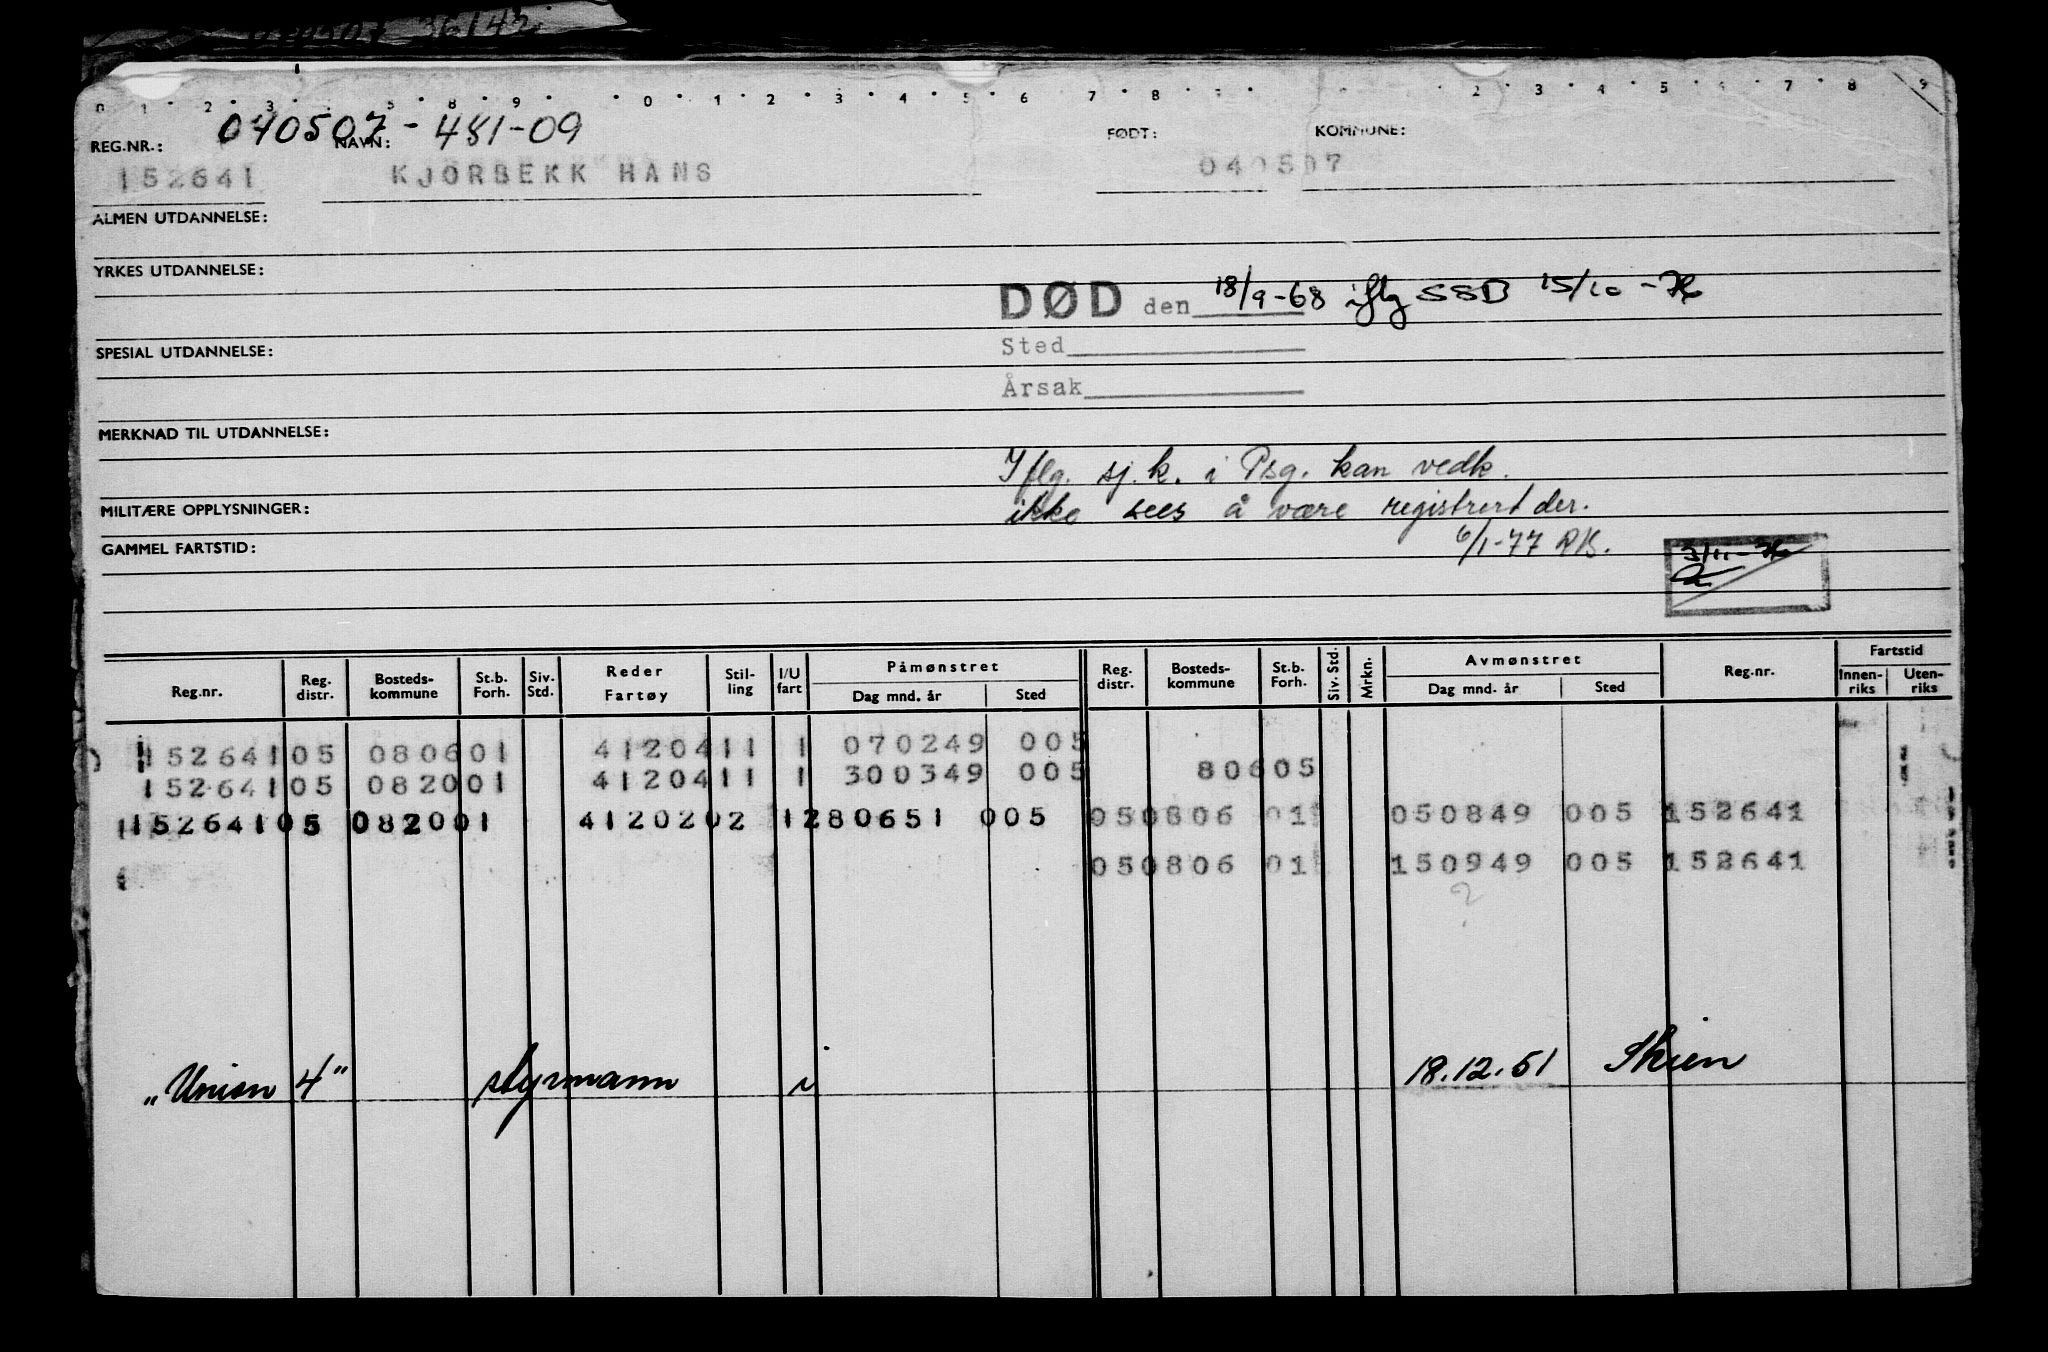 040507-481-09
REG.NR.: NAVN: FØDT: KOMMUNE:
152641 KJÖRBEKK HANS 040507
ALMEN UTDANNELSE:
YRKES UTDANNELSE:
DØD den 18/9-68 iflg SSD 15/10-
SPESIAL UTDANNELSE:
Sted
Årsak
MERKNAD TIL UTDANNELSE:
Iflg. sj.k. i Psg. kan vedk.
MILITÆRE OPPLYSNINGER:
ikke sees å være registrert der.
GAMMEL FARTSTID:
6/1-77
Reg.nr. Reg. distr. Bosteds-kommune St.b. Forh. Siv. Std. Reder Fartøy Stil-ling I/U fart Påmønstret Dag mnd. år Sted Reg. distr. Bosteds-kommune St.b. Forh. Siv. Std. Mrkn. Avmønstret Dag mnd. år Sted Reg.nr. Fartstid Innen-riks Uten-riks
152641 05 0806 01 41204 11 1 070249 005
152641 05 0820 01 41204 11 1 300349 005 80605
152641 05 0820 01 41202 02 1 280651 005 05 0806 01 050849 005 152641
05 0806 01 150949 005 152641
?
„Union 4" styrmann i 18.12.51 Skien